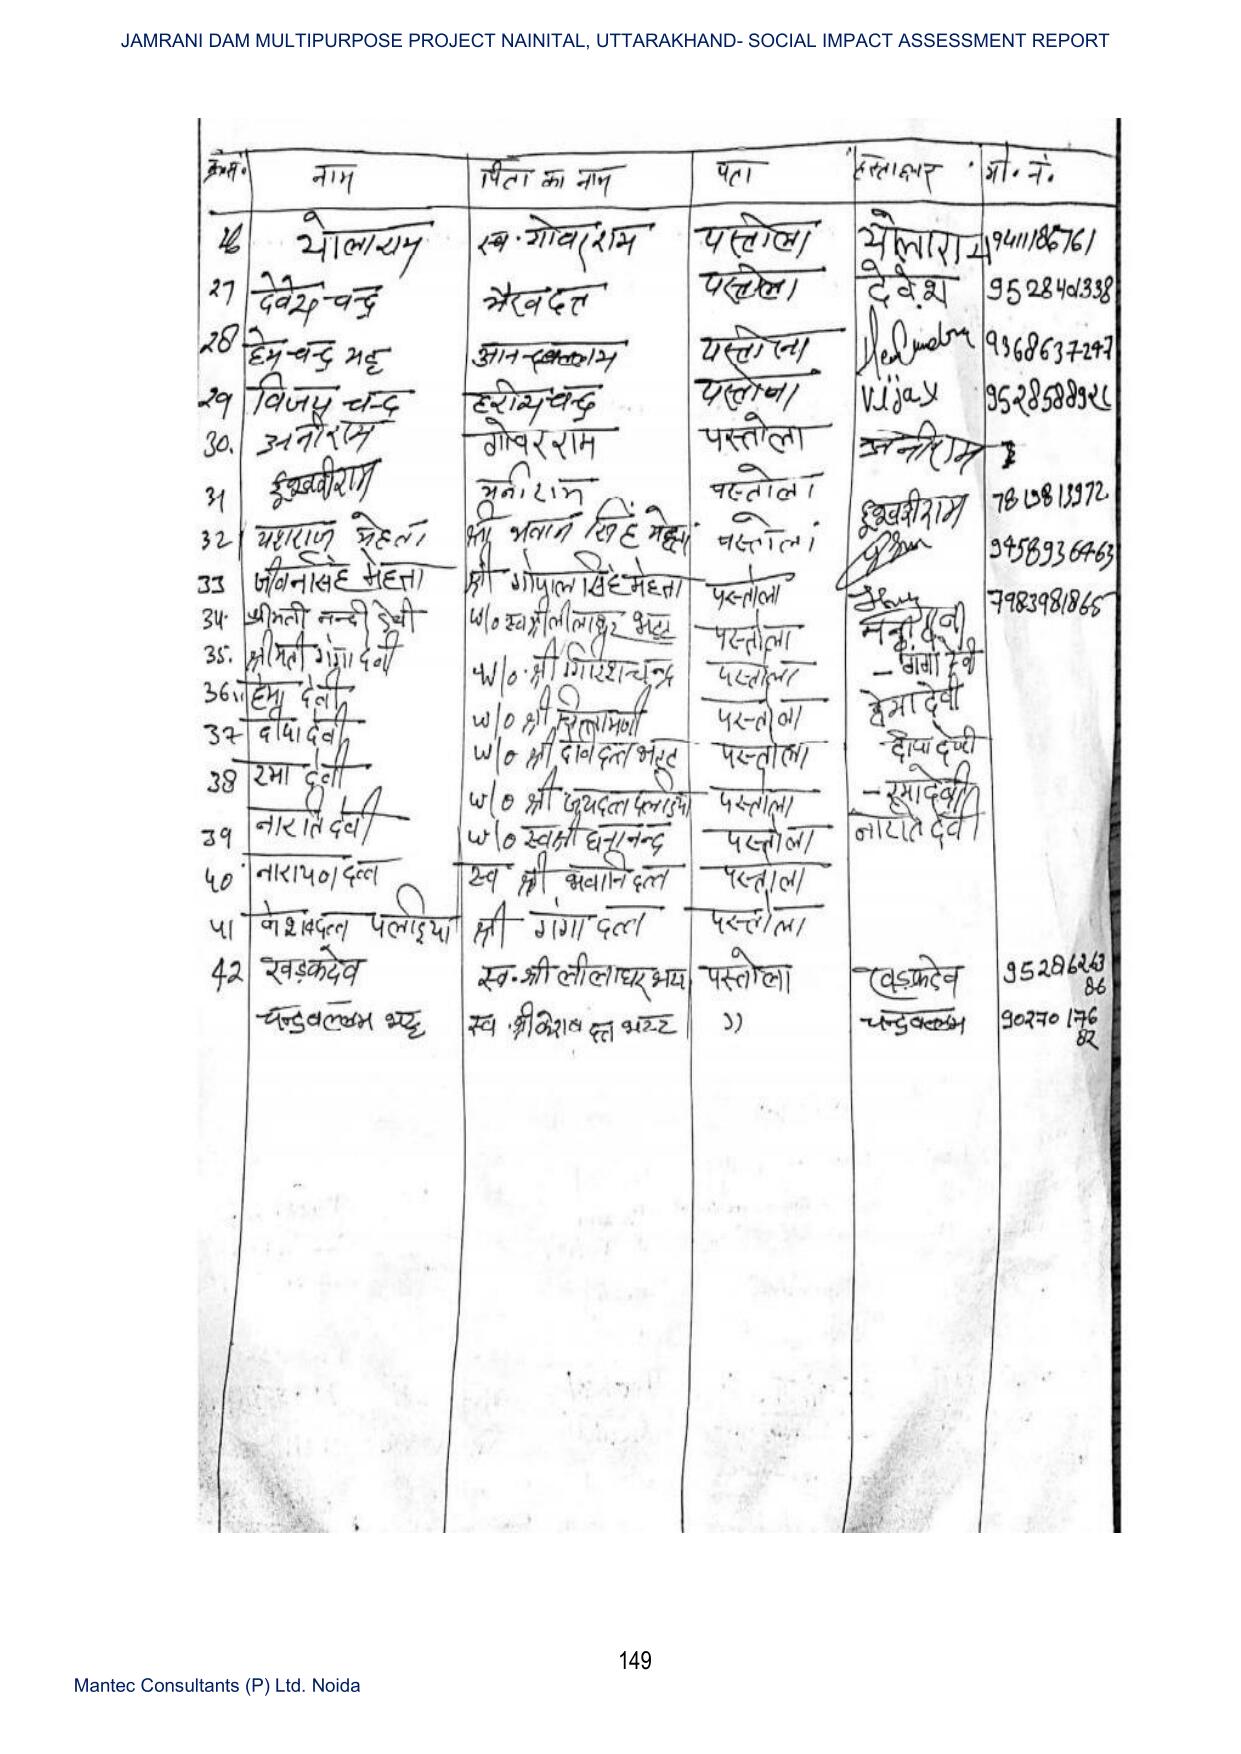 JAMRANI DAM MULTIPURPOSE PROJECT NAINITAL, UTTARAKHAND- SOCIAL IMPACT ASSESSMENT REPORT
क्र.सं. नाम पिता का नाम पता हस्ताक्षर मो. नं.
स्व. गोवर राम पस्तोला 9411186761
27 देवेश चन्द्र भैरव दत्त पस्तोला देवेश
28 हेम चन्द्र भट्ट पस्तोला 9368637247
29 विजय चन्द्र हरीश चन्द्र पस्तोला Vijay
30. अनीराम गोवर राम पस्तोला अनीराम
31 मनीराम पस्तोला
32 यशराज मेहता श्री भवान सिंह मेहता पस्तोला 9458936463
33 जीवन सिंह मेहता श्री गोपाल सिंह मेहता पस्तोला 7983981865
34. श्रीमती नन्दी देवी W/o स्व श्री लीलाधर भट्ट पस्तोला
35. श्रीमती गंगा देवी W/o. श्री गिरिश चन्द्र पस्तोला गंगा देवी
36. हेमा देवी W/o श्री पस्तोला हेमा देवी
37 दीपा देवी W/o श्री भट्ट पस्तोला दीपा देवी
38 रमा देवी W/o श्री जयदत्त पलड़िया पस्तोला रमा देवी
39 नारति देवी W/o स्व श्री घनानन्द पस्तोला नारति देवी
40 नारायण दत्त स्व श्री भवानि दत्त पस्तोला
41 केशव दत्त पलड़िया श्री गंगा दत्त पस्तोला
42 खड़कदेव स्व. श्री लीलाधर भट्ट पस्तोला खड़कदेव
चन्द्रवल्लभ भट्ट स्व. श्री केशव दत्त भट्ट )) चन्द्रवल्लभ 90270 176
82
149
Mantec Consultants (P) Ltd. Noida